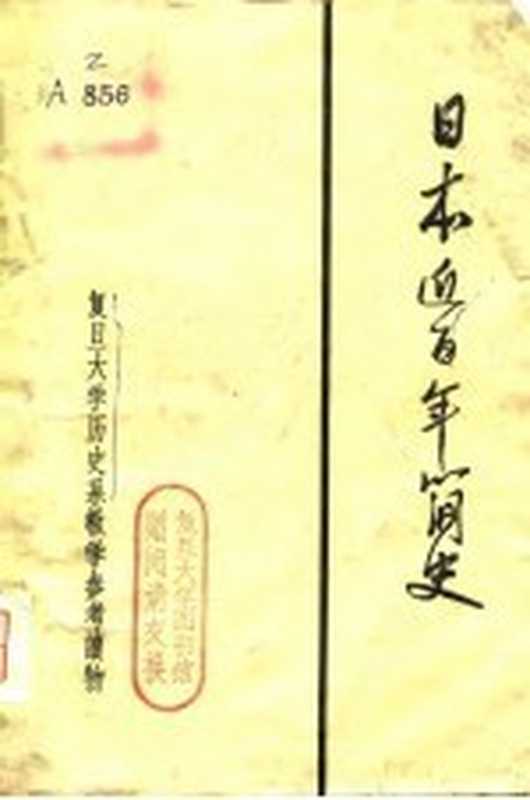 乙
A 856
日本近百年简史
复旦大学历史系教学参考读物
复旦大学图书馆